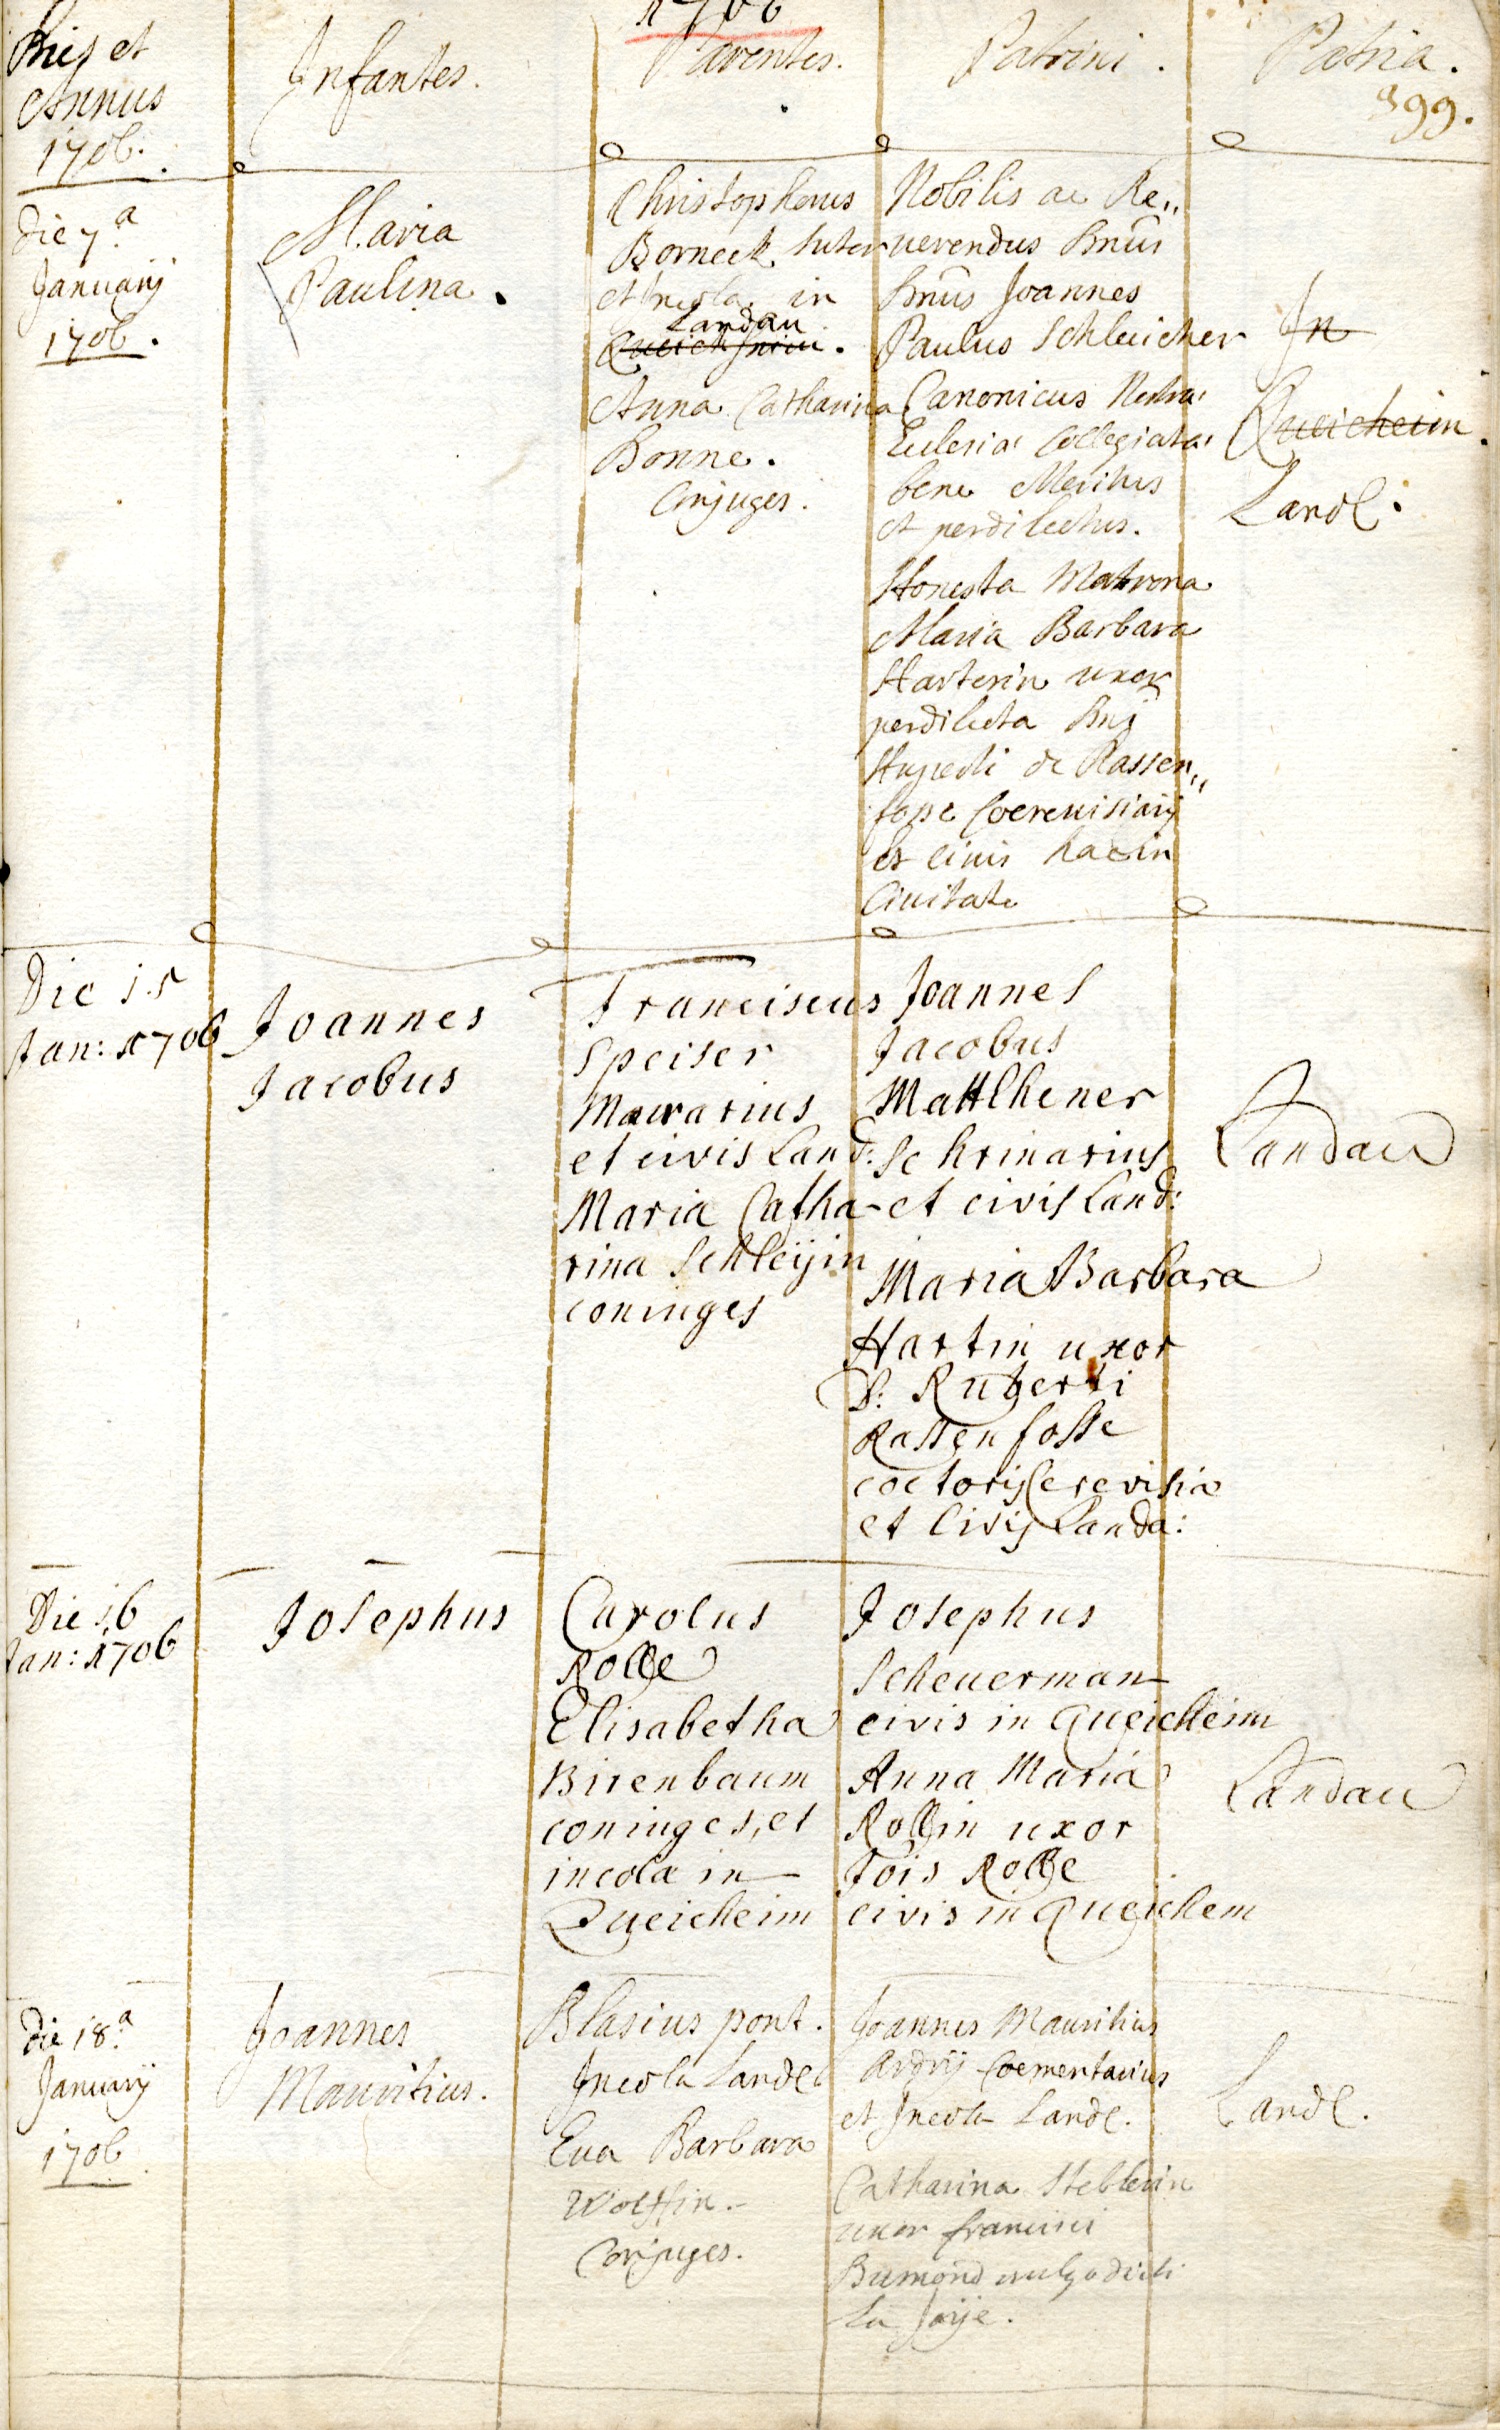 1706
Dies et
Annus
1706.
Infantes.
Parentes.
Patrini.
Patria.
399.
Die 7.a
Januarij
1706.
Maria
Paulina.
Christophorus
Borneck sutor
et incola in
Landau
Queichheim.
Anna Catharina
Bonne.
Conjuges.
Nobilis ac Re,,
verendus Dnus
Dnus Joannes
Paulus Schleicher
Canonicus Nostra
Eclesia Collegiata
bene Meritus
et perdilectus.
Honesta Matrona
Maria Barbara
Harterin uxor
perdilecta Dnj
Huperti de Rassen,,
fosse Coerevisiarij
et civis hac in
Civitate
In
Queicheim.
Landl.
Die 15
Jan: 1706
Joannes
Jacobus
Franciscus
Speiser
Murarius
et civis Land:
Maria Catha-
rina Schleijin
coniuges
Joannes
Jacobus
Matthener
Schrinarius
et civis Land:
Maria Barbara
Hartin uxor
D: Ruberti
Rassenfosse
coctoris Cerevisia
et Civis Landa:
Landau
Die 16
Jan: 1706
Josephus
Carolus
Rolle
Elisabetha
Birenbaum
coniuges, et
incola in
Queicheim
Josephus
Scheuerman
civis in Queicheim
Anna Maria
Rollin uxor
Jois Rolle
civis in Queichem
Landau
die 18.a
Januarij
1706
Joannes
Mauritius.
Blasius pont.
Incola Landl
Eva Barbara
Wolffin.
Conjuges.
Joannes Mauritius
Ardij Coementarius
et Incola Landl.
Catharina Steblerin
uxor francisci
Bumond vulgo dicti
La Joije.
Landl.